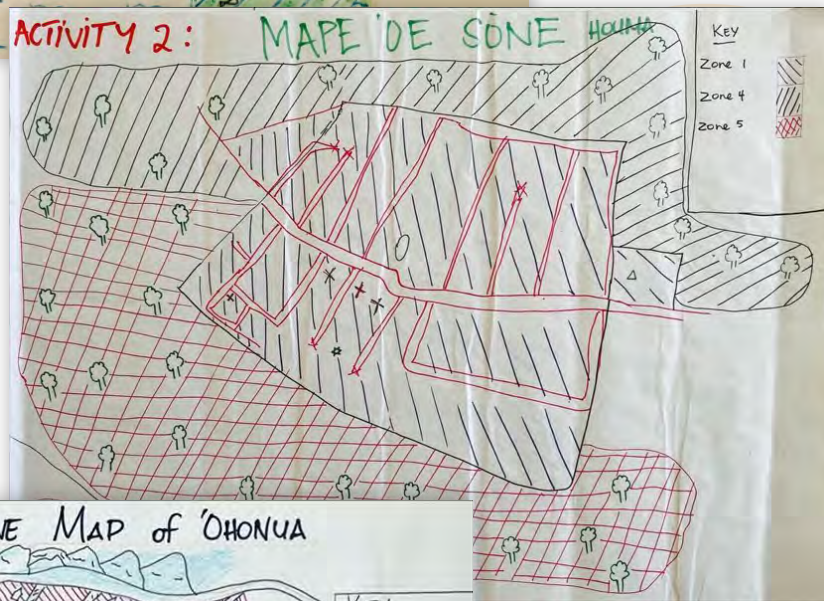 ACTIVITY 2:
MAPE 'OE SONE HOUMA
KEY
Zone 1
Zone 4
Zone 5
NE MAP of 'OHONUA